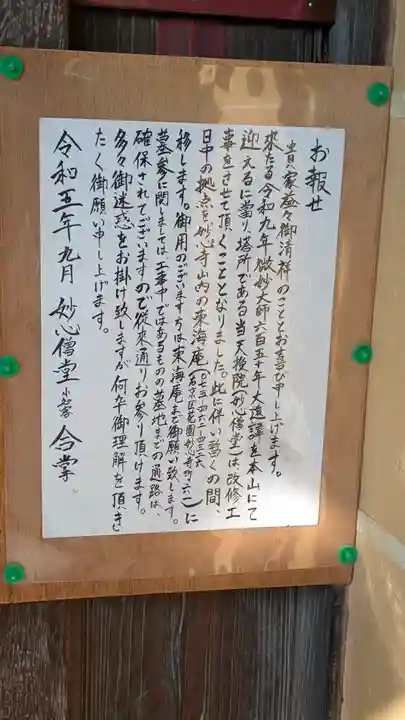 お報せ
貴家益々御清祥のこととお喜び申し上げます。
来たる令和九年微妙大師六百五十年大遠諱を本山にて
迎えるに當り、塔所である当天授院(妙心僧堂)は改修工
事をさせて頂くこととなりました。此に伴い暫くの間、
日中の拠点を妙心寺山内の東海庵(〇七五-四六二-四三二六 右京区花園妙心寺町六一)に
移します。御用のございます方は東海庵まで御願い致します。
墓参に関しましては工事中ではあるものの墓地までの通路は、
確保されてございますので従来通りお参り頂けます。
多々御迷惑をお掛け致しますが何卒御理解を頂きし
たく御願い申し上げます。
令和五年九月 妙心僧堂 合掌